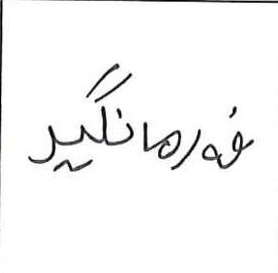 فەرمانگیر